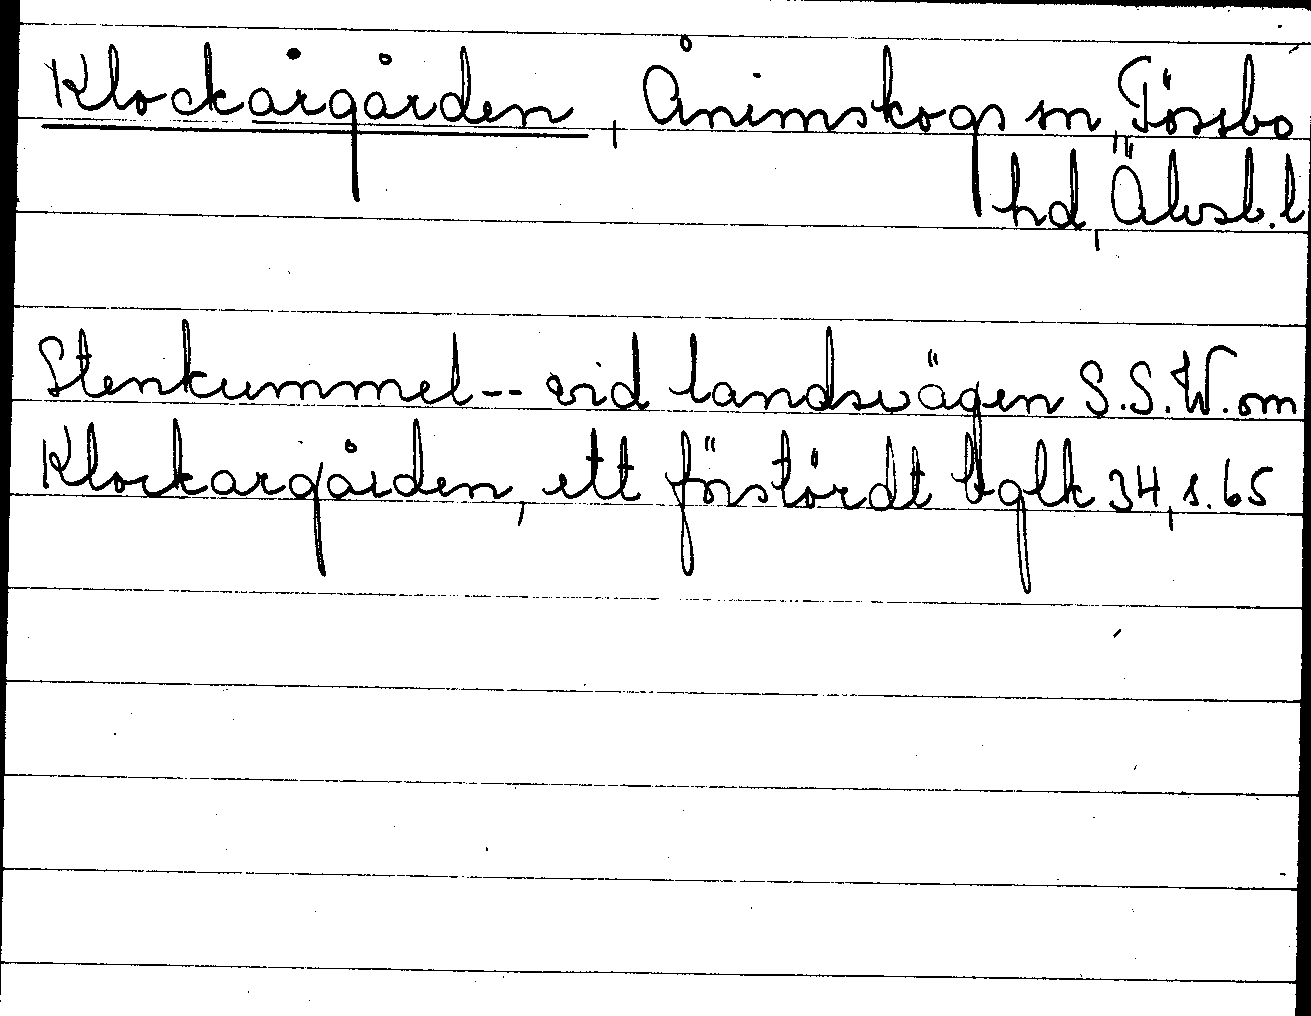 Klockargården, Ånimskogs sn, Tössbo
hd, Älvsb. l
Stenkummel -- vid landsvägen S.S.W. om
Klockargården, ett förstördt tglk 34, s. 65